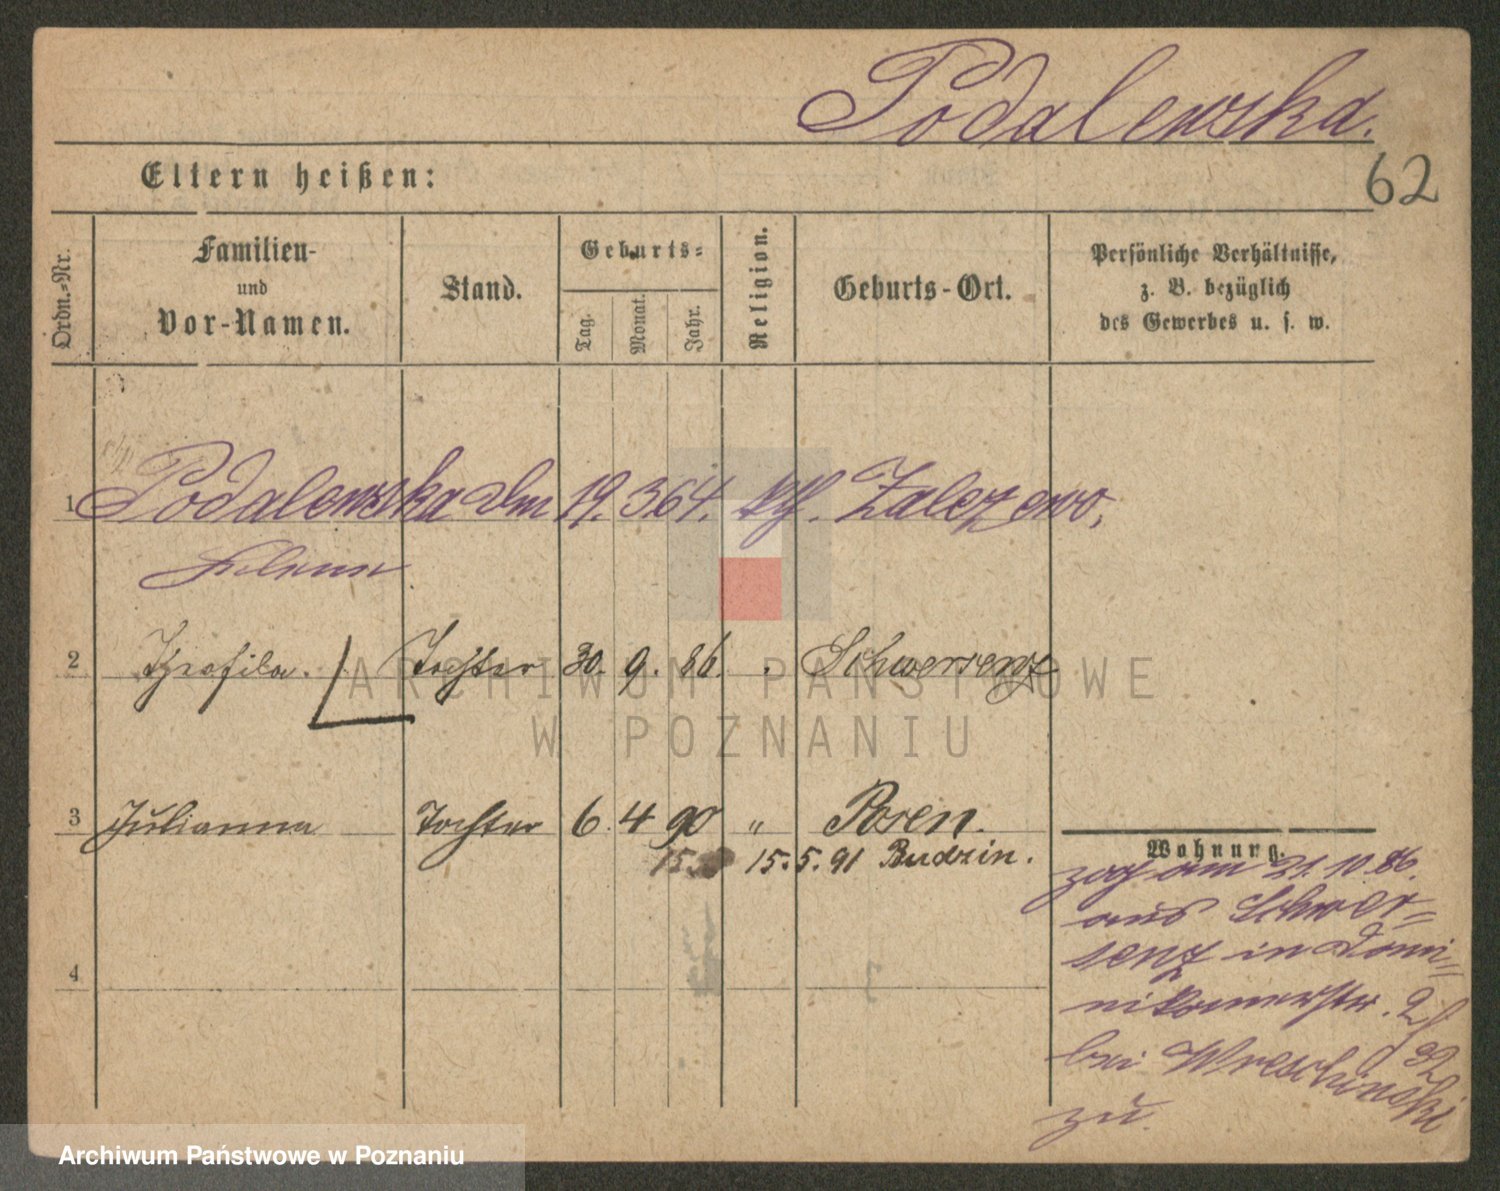 Podalewska.
62
Eltern heißen:
Ordn.-Nr.
Familien-
und
Vor-Namen.
Stand.
Geburts-
Tag.
Monat.
Jahr.
Religion.
Geburts-Ort.
Persönliche Verhältnisse,
z. B. bezüglich
des Gewerbes u. s. w.
1 Podalewska 19. 3 64. kth. Zalezewo,
2 Tochter 30. 9. 86. Schwersenz
3 Julianna Tochter 6. 4 90 " Posen.
15.5.91 Budzin.
4
Wohnung.
zog am 21. 10. 86.
aus Schwer=
senz in Domi=
nikanerstr. 2
bei Wreschinski
zu.
ARCHIWUM PAŃSTWOWE
W POZNANIU
Archiwum Państwowe w Poznaniu